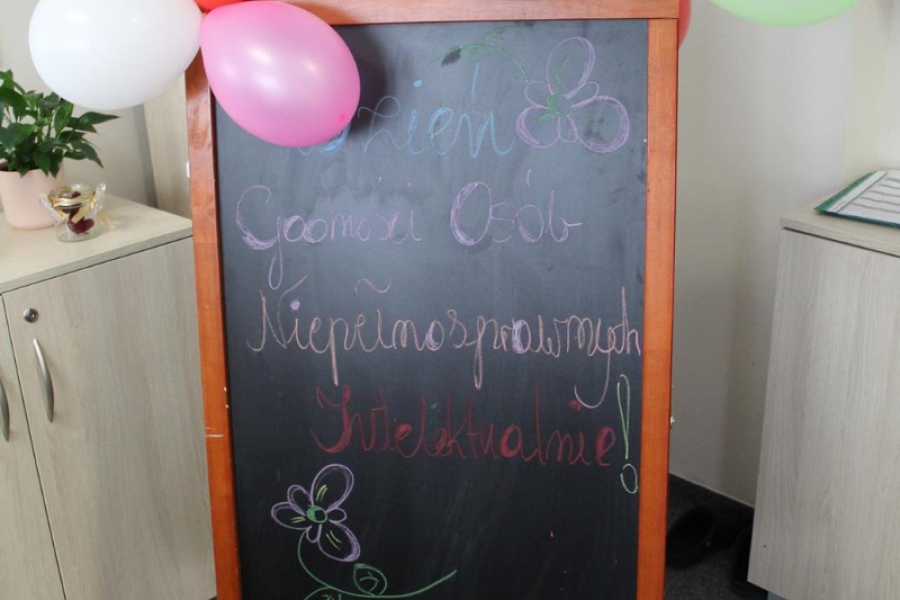 Dzień
Godności Osób
Niepełnosprawnych
Intelektualnie!